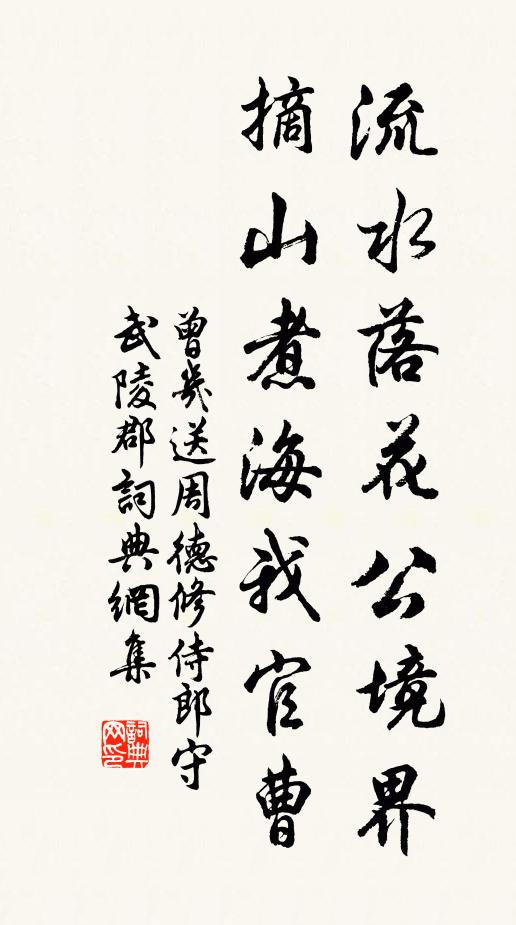 流水落花公境界
摘山煮海我官曹
曾幾送周德修侍郎守
武陵郡詞典網集
詞典
网印